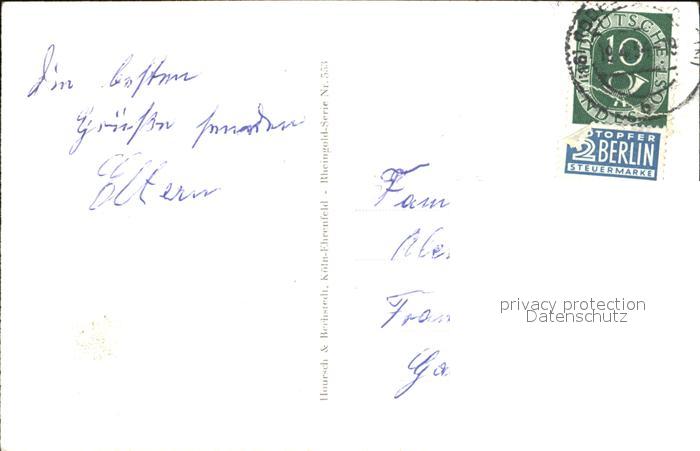 Die besten
Grüße senden
Eltern
Hoursch & Bechstedt, Köln-Ehrenfeld - Rheingold-Serie Nr. 553
DEUTSCHE
10
BUNDESPOST
NOTOPFER
2 BERLIN
STEUERMARKE
Fam
Fran
privacy protection
Datenschutz